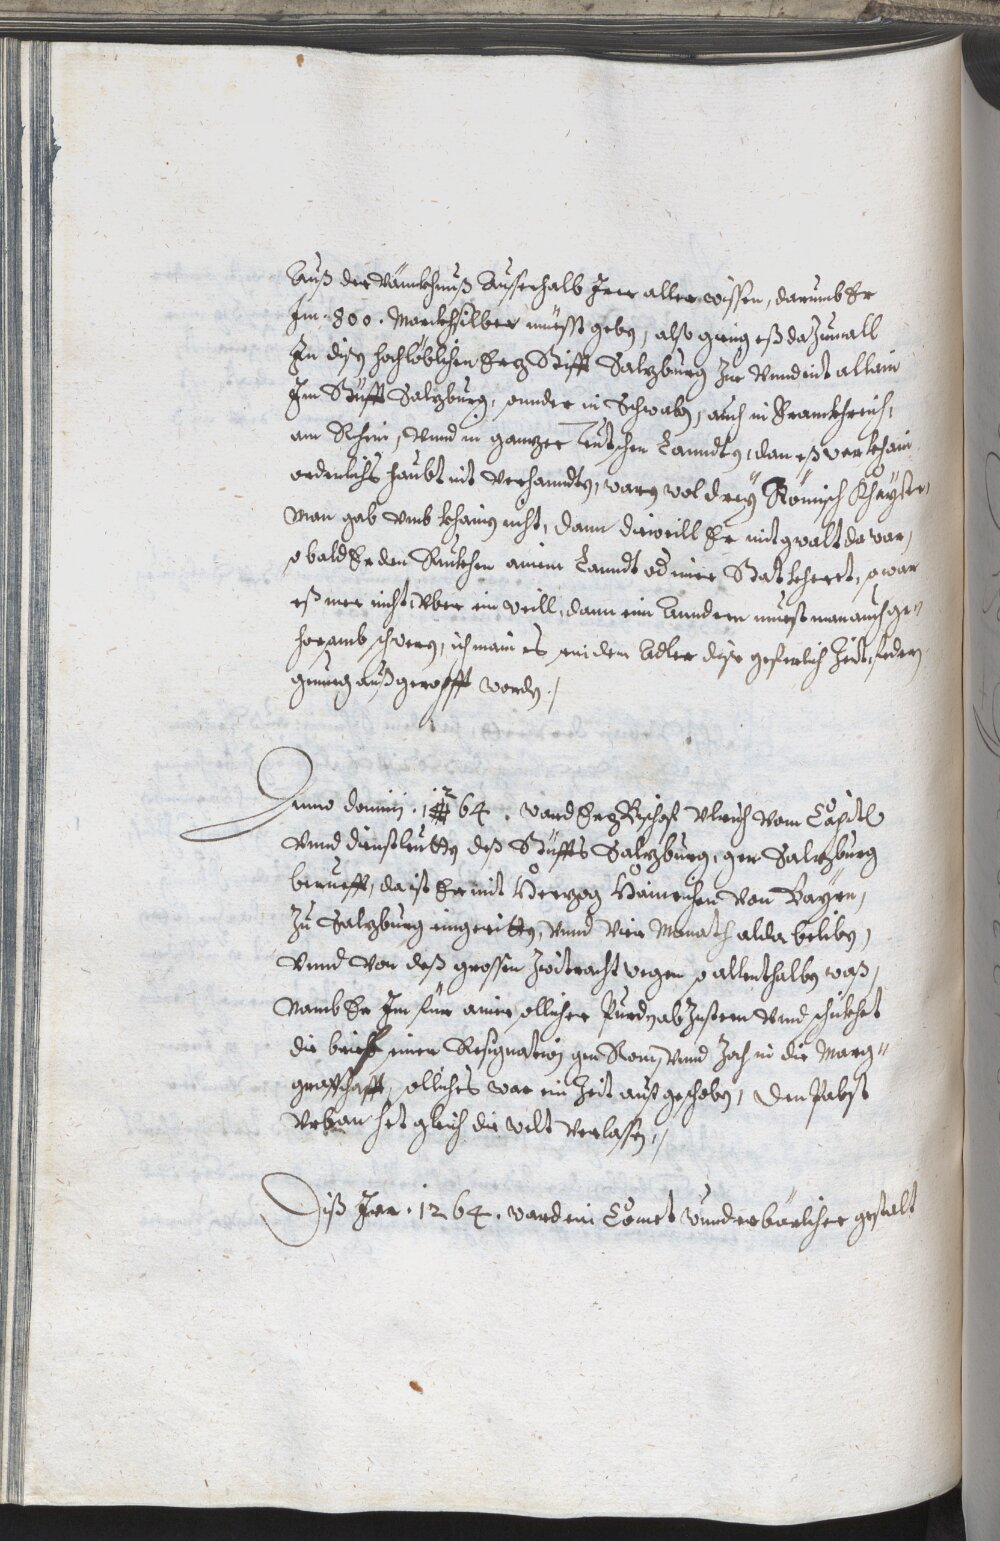 Auß der Vännkhnuß Ausserhalb Irer aller wissen, darumb Er
Im .800. Marckh silber müesst geben, also gieng eß dazumall
In disen hochlöblichen Erz Stifft Salzburg zue vnnd nit allain
Im Stüfft Salzburg, sonnder in Schwaben, auch in Frannkhreich,
am Rhein, vnnd in ganzer Teütschen Lanndten, dan eß war khain
ordenlichs haubt nit verhannden, waren wol dreÿ Römisch Khaÿser,
Man gab vmb khainen nicht, dann dieweill Er mit gwalt da war,
so bald Er den Rukhen ainem Lanndt oder einer Stat kheret, so war
eß mer nicht, vber ein weill, dann eim Anndern muest man auch ge=
horsamb schweren, ich main es sein dem Adler dise geferlich Zeit, federn
genueg außgeropfft worden ./
Anno domini .1264. ward Erz Bischof Vlrich vom Capitl
vnnd dienstleutten deß Stüffts Salzburg, gen Salzburg
berueft, da ist Er mit Herzog Hainrichen von Bayrn,
Zu Salzburg eingeritten, vnnd vier Monath alda beliben,
vnnd von deß grossen zwitracht wegen so allenthalben waß,
Namb Er Im für ainer sollichen Pürden abzusteen vnnd schikhet
die brief seiner Resignation gen Rom, vnnd zoch in die Marg=
graffschafft, solliches war ein Zeit aufgeschoben, Den Pabst
Vrban het gleich die welt verlassen ./
Diß Jar .1264. ward ein Comet wunderbarlicher gestalt